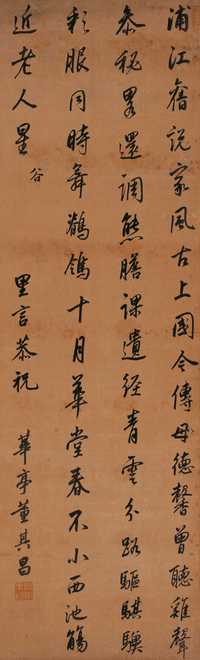 浦江舊說家風古上國今傳母德馨曾聽雞聲
參秘畧還調熊膽課遺經青雲分路驅騏驥
彩服同時舞鶺鴒十月華堂春不小西池觴
近老人星 谷
里言恭祝 華亭董其昌